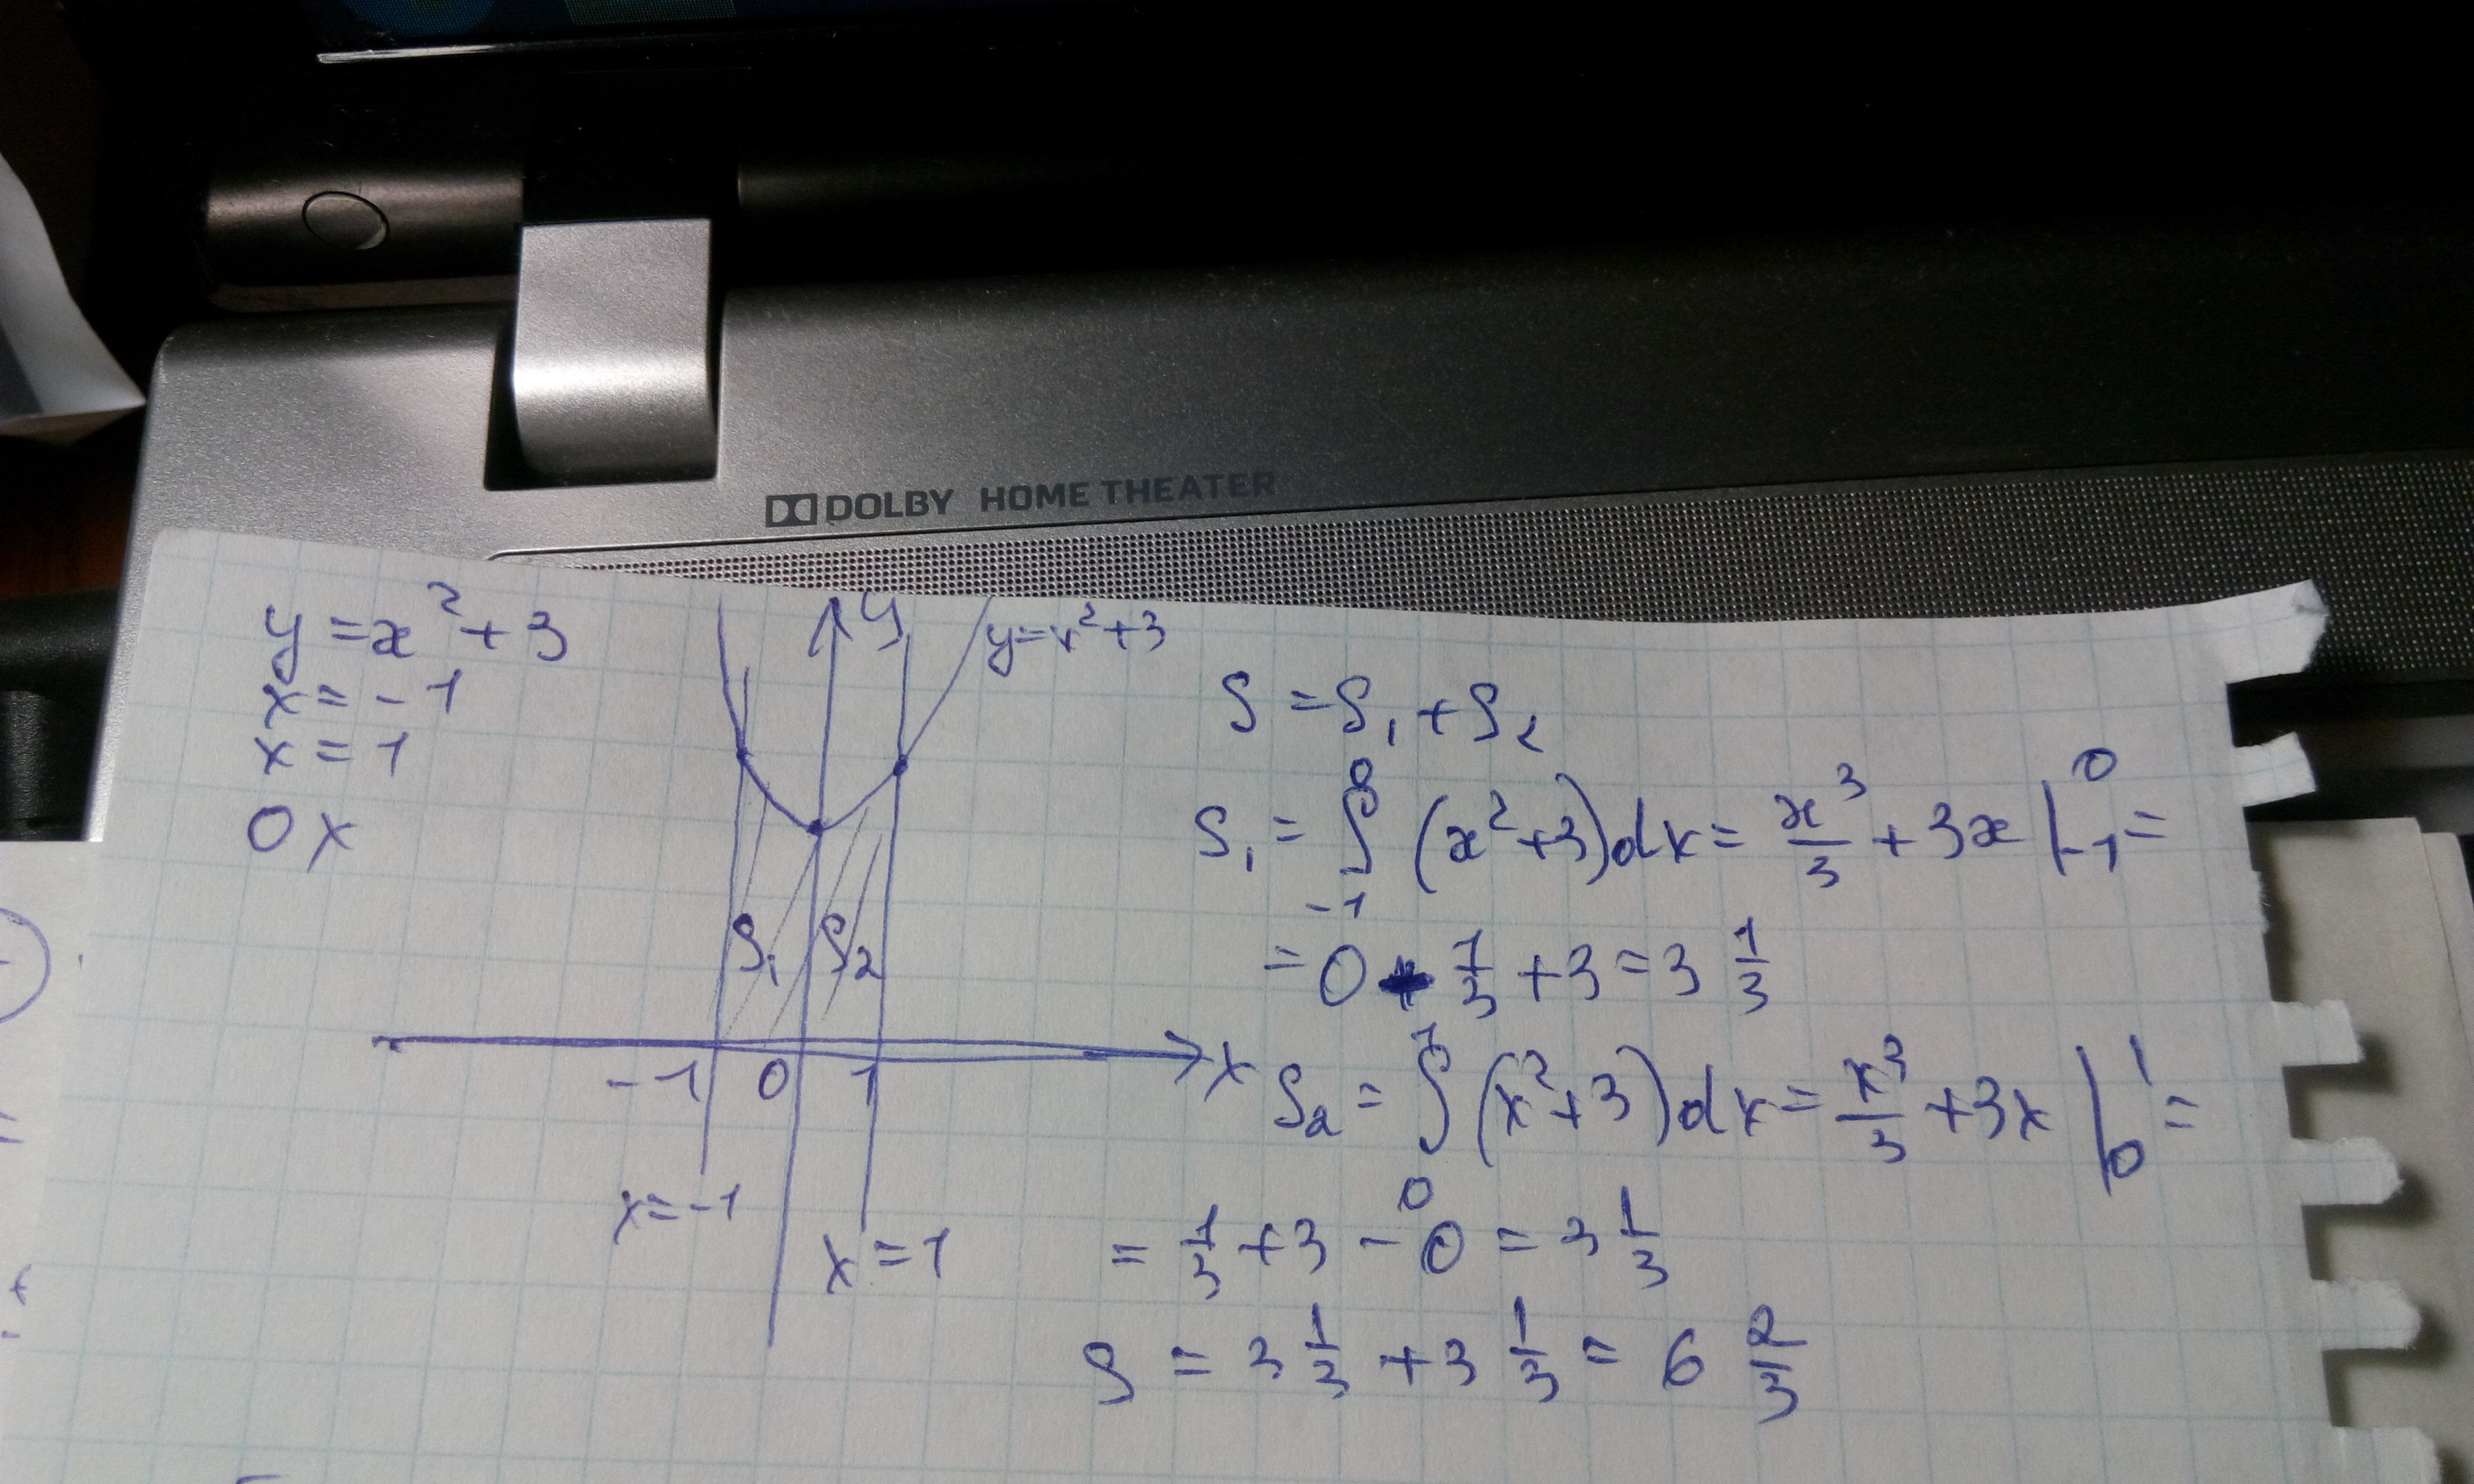 DOLBY HOME THEATER
y = x² + 3
x = -1
x = 1
0x
y
y=x²+3
S₁
S₂
-1 0 1
x
x=-1
x=1
S = S₁ + S₂
S₁ = ∫₋₁⁰ (x²+3)dx = x³/3 + 3x |₋₁⁰ =
= 0 + 1/3 + 3 = 3 1/3
S₂ = ∫₀¹ (x²+3)dx = x³/3 + 3x |₀¹ =
= 1/3 + 3 - 0 = 3 1/3
S = 3 1/3 + 3 1/3 = 6 2/3